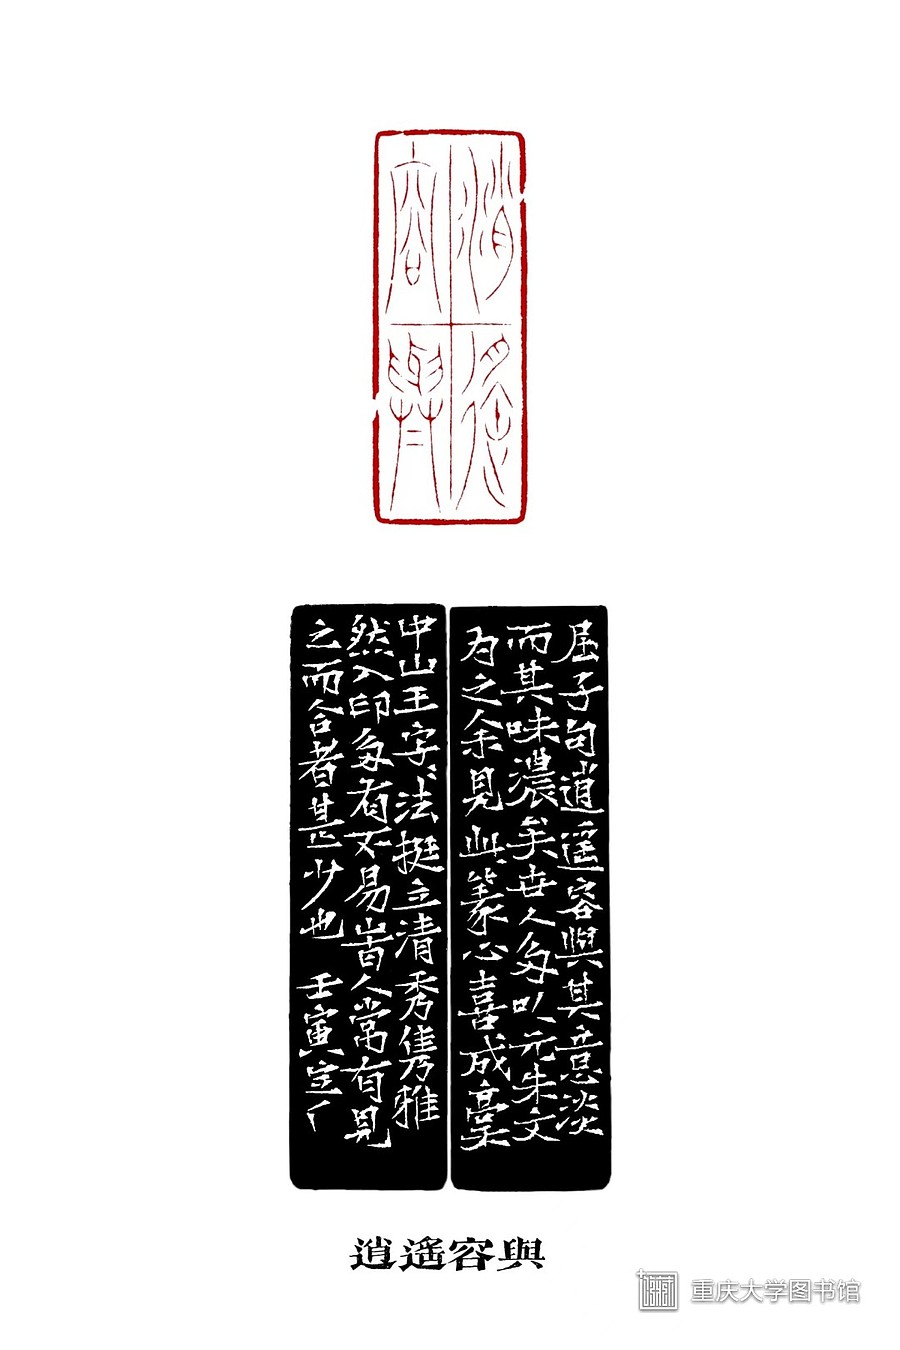 逍遥
容與
屈子句逍遥容與其意淡
而其味濃矣世人多以元朱文
为之余見此篆心喜成稾
中山王字法挺立清秀雋雅
然入印多有不易峕人常有見
之而合者甚少也 壬寅宝
逍遙容與
重庆大学图书馆